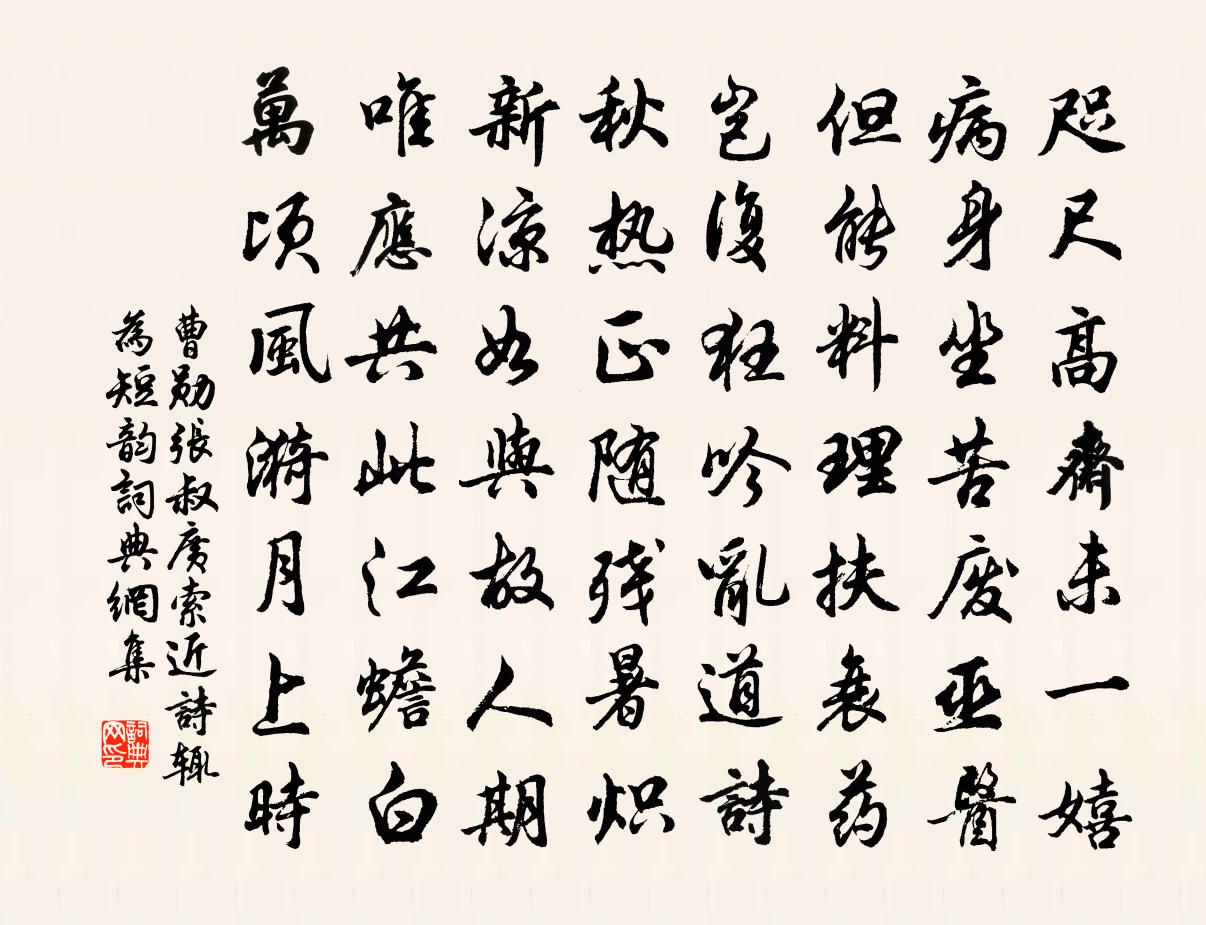 咫尺高齋未一嬉
病身坐苦废巫醫
但能料理扶衰药
豈復狂吟亂道詩
秋热正随残暑炽
新凉如與故人期
唯應共此江蟾白
萬顷風漪月上時
曹勋張叔廣索近詩辄
為短韵詞典網集
詞典
网印